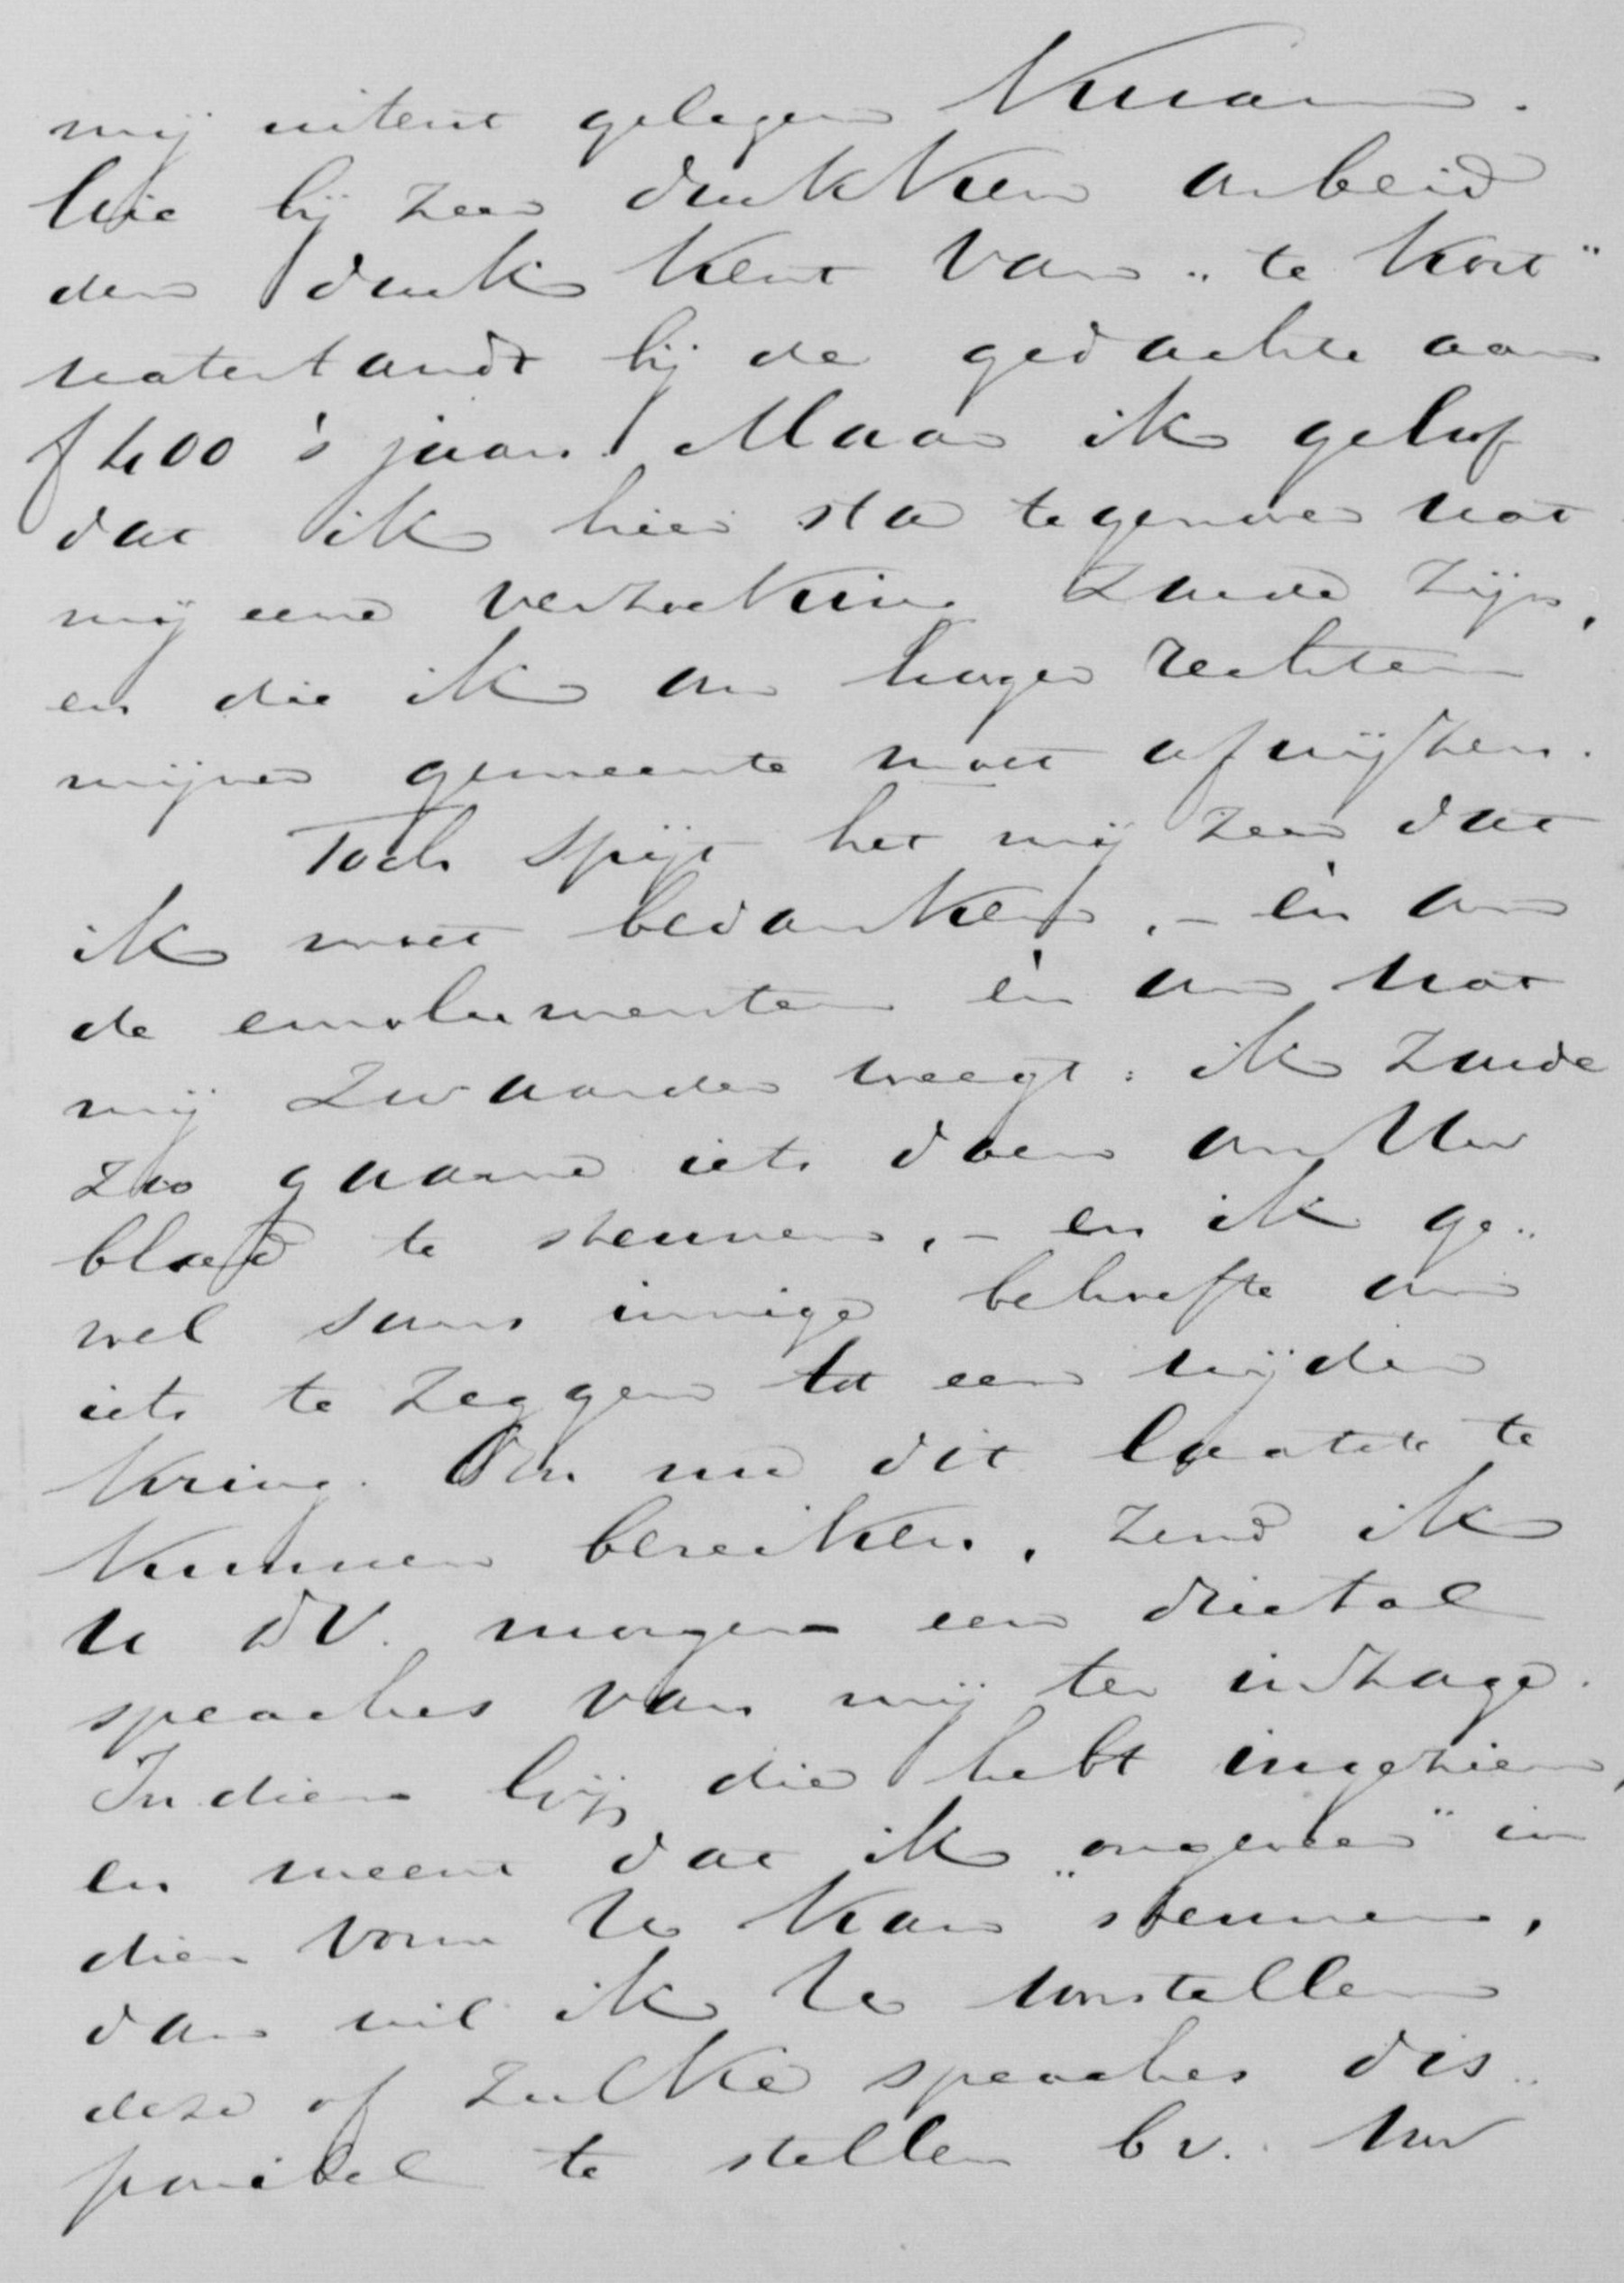 mij uitent gelegen kwam.
Wie bij zeer drukken arbeid
den druk kent van „te kort"
watertandt bij de gedachte aan
f 400 's jaars. Maar ik geloof
dat ik hier sta tegenover wat
mij eene verzoeking zoude zijn,
en die ik om hooger rechten
mijner gemeente moet afwijzen.
Toch spijt het mij zeer dat
ik moet bedanken, – èn om
de emolumenten èn om wat
mij zwaarder weegt: ik zoude
zoo gaarne iets doen om Uw
blad te steunen, – en ik ge„
voel soms innige behoefte om
iets te zeggen tot een wijder
kring. Om nu dit laatste te
kunnen bereiken, zend ik
U DV. morgen een drietal
speaches van mij ter inzage.
Indien Gij die hebt ingezien,
en meent dat ik „ongeveer" in
dien vorm U kan steunen,
dan wil ik U voorstellen
deze of zulke speaches dis„
ponibel te stellen bv. voor